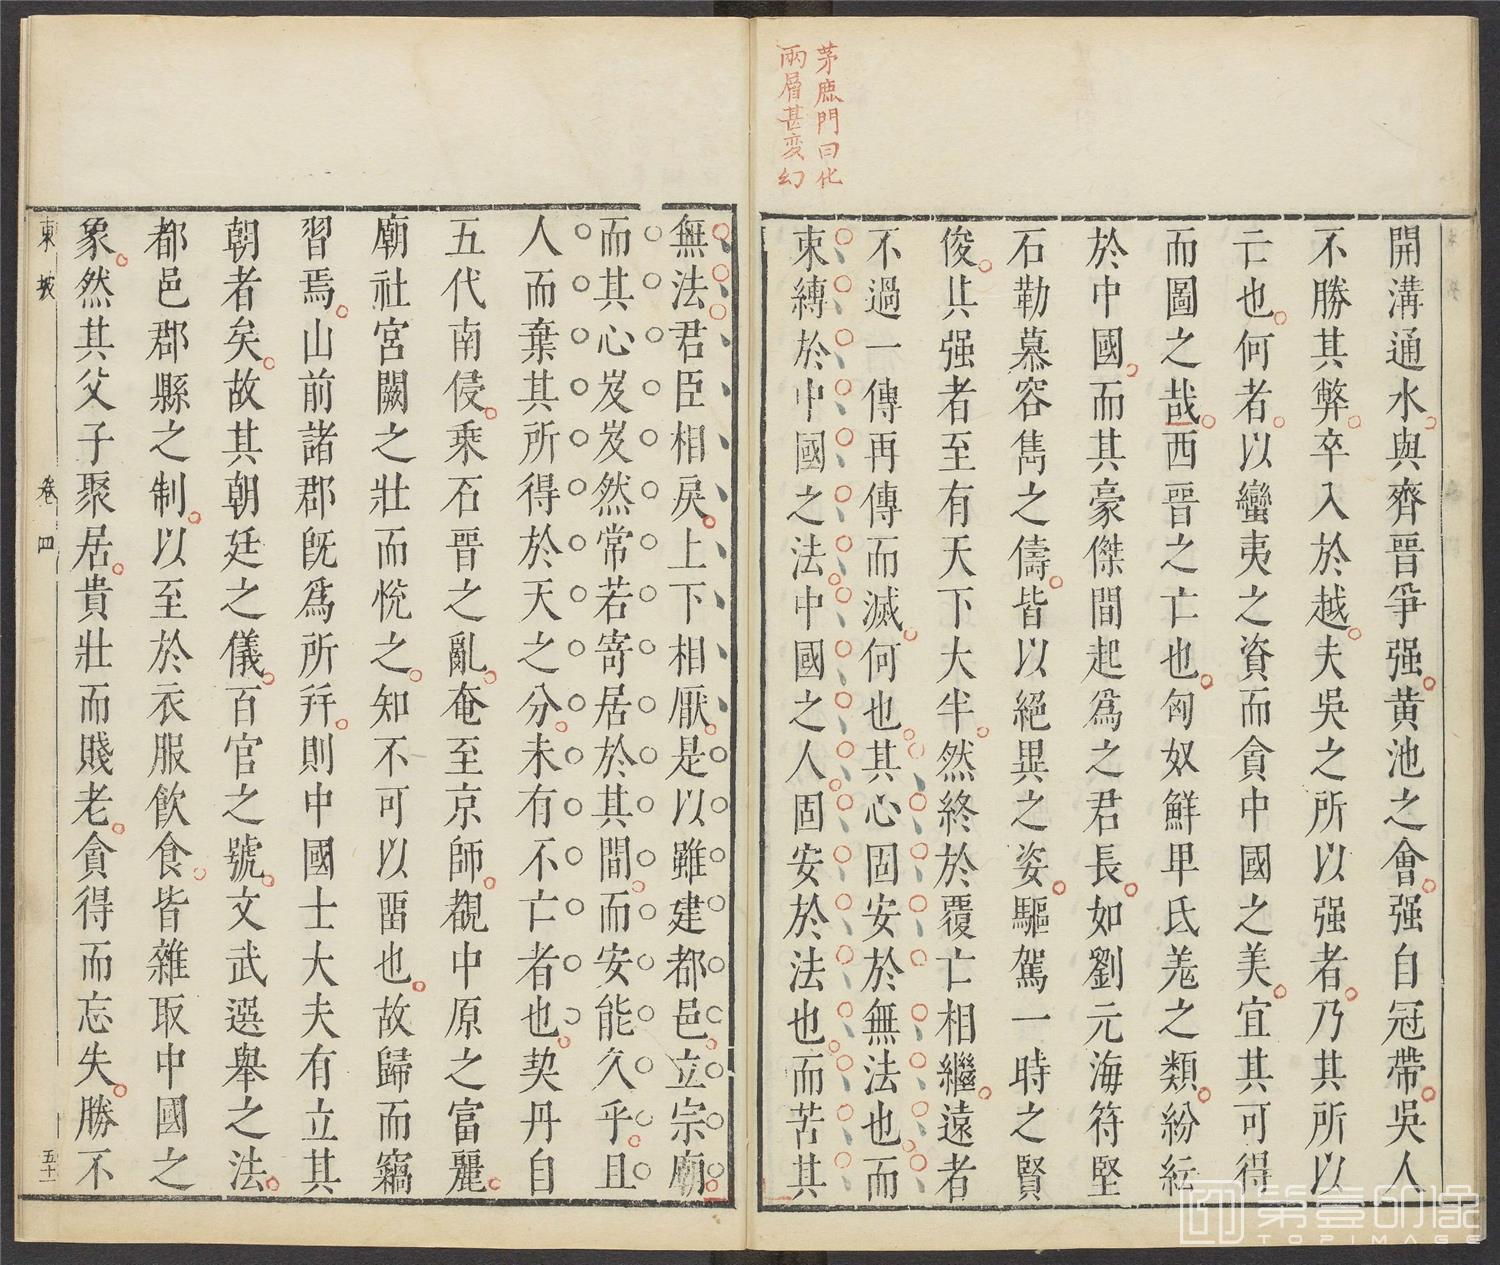 茅鹿門曰化
兩層甚変幻
開溝通水與齊晉爭强黄池之會强自冠帶吳人
不勝其弊卒入於越夫吳之所以强者乃其所以
亡也何者以蠻夷之資而貪中國之美宜其可得
而圖之哉西晉之亡也匈奴鮮卑氐羌之類紛紜
於中國而其豪傑間起爲之君長如劉元海符堅
石勒慕容雋之儔皆以絕異之姿驅駕一時之賢
俊其强者至有天下大半然終於覆亡相繼遠者
不過一傳再傳而滅何也其心固安於無法也而
束縛於中國之法中國之人固安於法也而苦其
無法君臣相戾上下相厭是以雖建都邑立宗廟
而其心岌岌然常若寄居於其間而安能久乎且
人而棄其所得於天之分未有不亡者也契丹自
五代南侵乘石晉之亂奄至京師觀中原之富麗
廟社宮闕之壯而悅之知不可以畱也故歸而竊
習焉山前諸郡旣爲所幷則中國士大夫有立其
朝者矣故其朝廷之儀百官之號文武選舉之法
都邑郡縣之制以至於衣服飲食皆雜取中國之
象然其父子聚居貴壯而賤老貪得而忘失勝不
東坡 卷四 五十一
第壹印像
TOPIMAGE